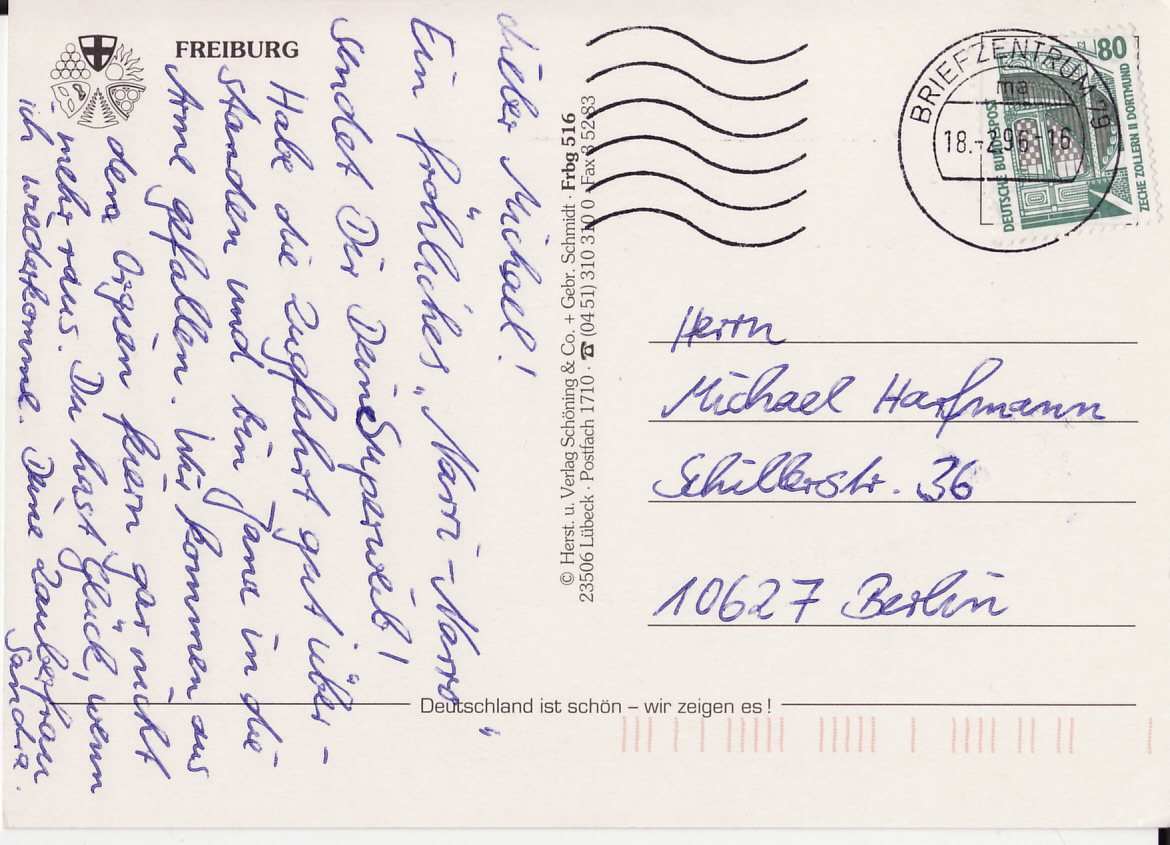 FREIBURG
Lieber Michael!
Ein fröhliches „Narri-Narro“
sendet Dir Dein Superweib!
Habe die Zugfahrt gut über-
standen und bin Jana in die
Arme gefallen. Wir kommen aus
dem Orgien feiern gar nicht
mehr raus. Du hast Glück, wenn
ich wiederkomme. Deine Zauberfrau
Sandra.
© Herst. u. Verlag Schöning & Co. + Gebr. Schmidt · Frbg 516
23506 Lübeck · Postfach 1710 · ☎ (04 51) 310 310 0 · Fax 3 52 83
BRIEFZENTRUM 79
ma
18.-2.96-16
80
DEUTSCHE BUNDESPOST
ZECHE ZOLLERN II DORTMUND
Herrn
Michael
Schillerstr. 36
10627 Berlin
Deutschland ist schön – wir zeigen es!